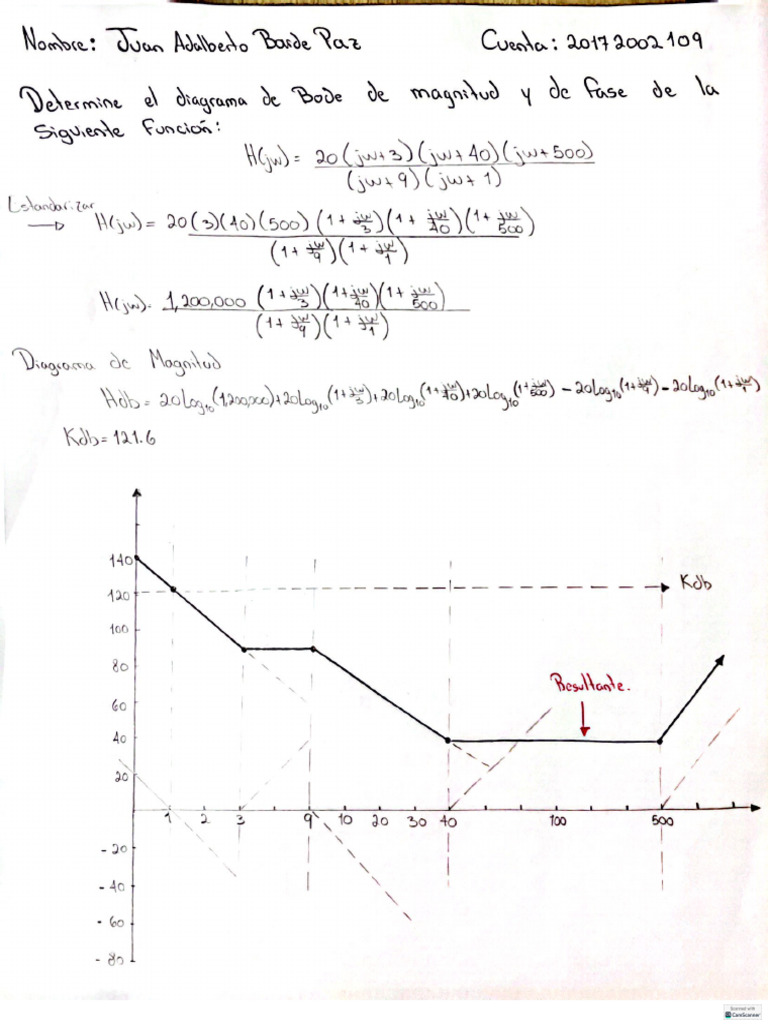 Nombre: Juan Adalberto Barde Paz Cuenta: 20172002109
Determine el diagrama de Bode de magnitud y de fase de la
Siguiente Función:
H(jw) = 20(jw+3)(jw+40)(jw+500)
(jw+9)(jw+1)
Estandarizar
H(jw) = 20(3)(40)(500)(1+jw/3)(1+jw/40)(1+jw/500)
(1+jw/9)(1+jw/1)
H(jw)= 1,200,000 (1+jw/3)(1+jw/40)(1+jw/500)
(1+jw/9)(1+jw/1)
Diagrama de Magnitud
Hdb = 20Log₁₀(1,200,000)+20Log₁₀(1+jw/3)+20Log₁₀(1+jw/40)+20Log₁₀(1+jw/500) - 20Log₁₀(1+jw/9) - 20Log₁₀(1+jw/1)
Kdb = 121.6
140
120
Kdb
100
80
60
Resultante.
40
20
1 2 3 9 10 20 30 40 100 500
- 20
- 40
- 60
- 80
Scanned with
CamScanner